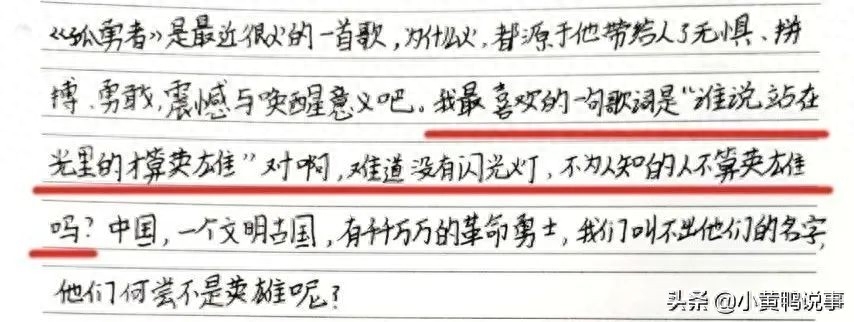 《孤勇者》是最近很火的一首歌，为什么火，都源于他带给人了无惧、拼
搏、勇敢，震憾与唤醒意义吧。我最喜欢的一句歌词是“谁说站在
光里的才算英雄”对啊，难道没有闪光灯，不为人知的人不算英雄
吗？中国，一个文明古国，有千千万万的革命勇士，我们叫不出他们的名字，
他们何尝不是英雄呢？
头条 @小黄鸭说事